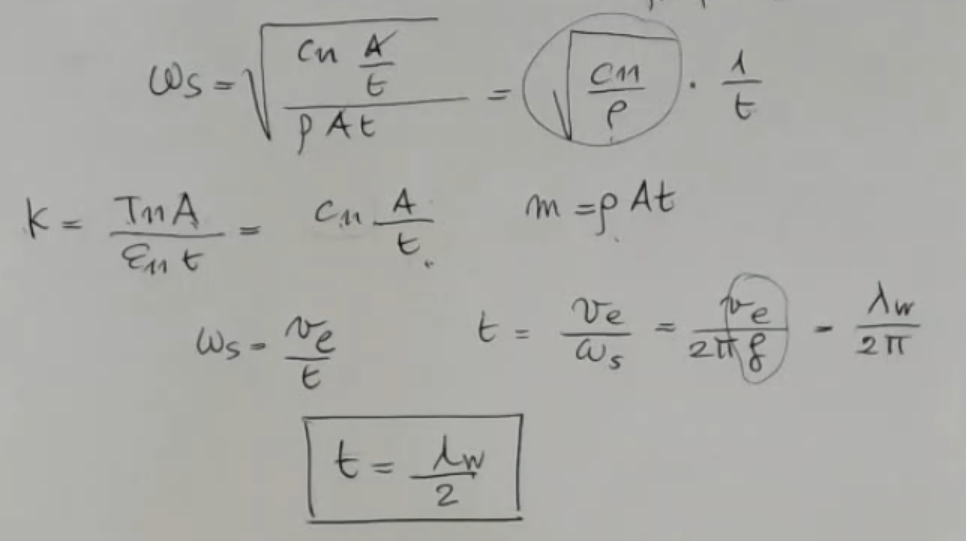 ωs = √(c11 A/t / ρAt) = √(c11/ρ) · 1/t
k = T11A / ε11t = c11 A/t. m = ρAt
ωs = ve/t t = ve/ωs = ve/2πf = λw/2π
t = λw/2